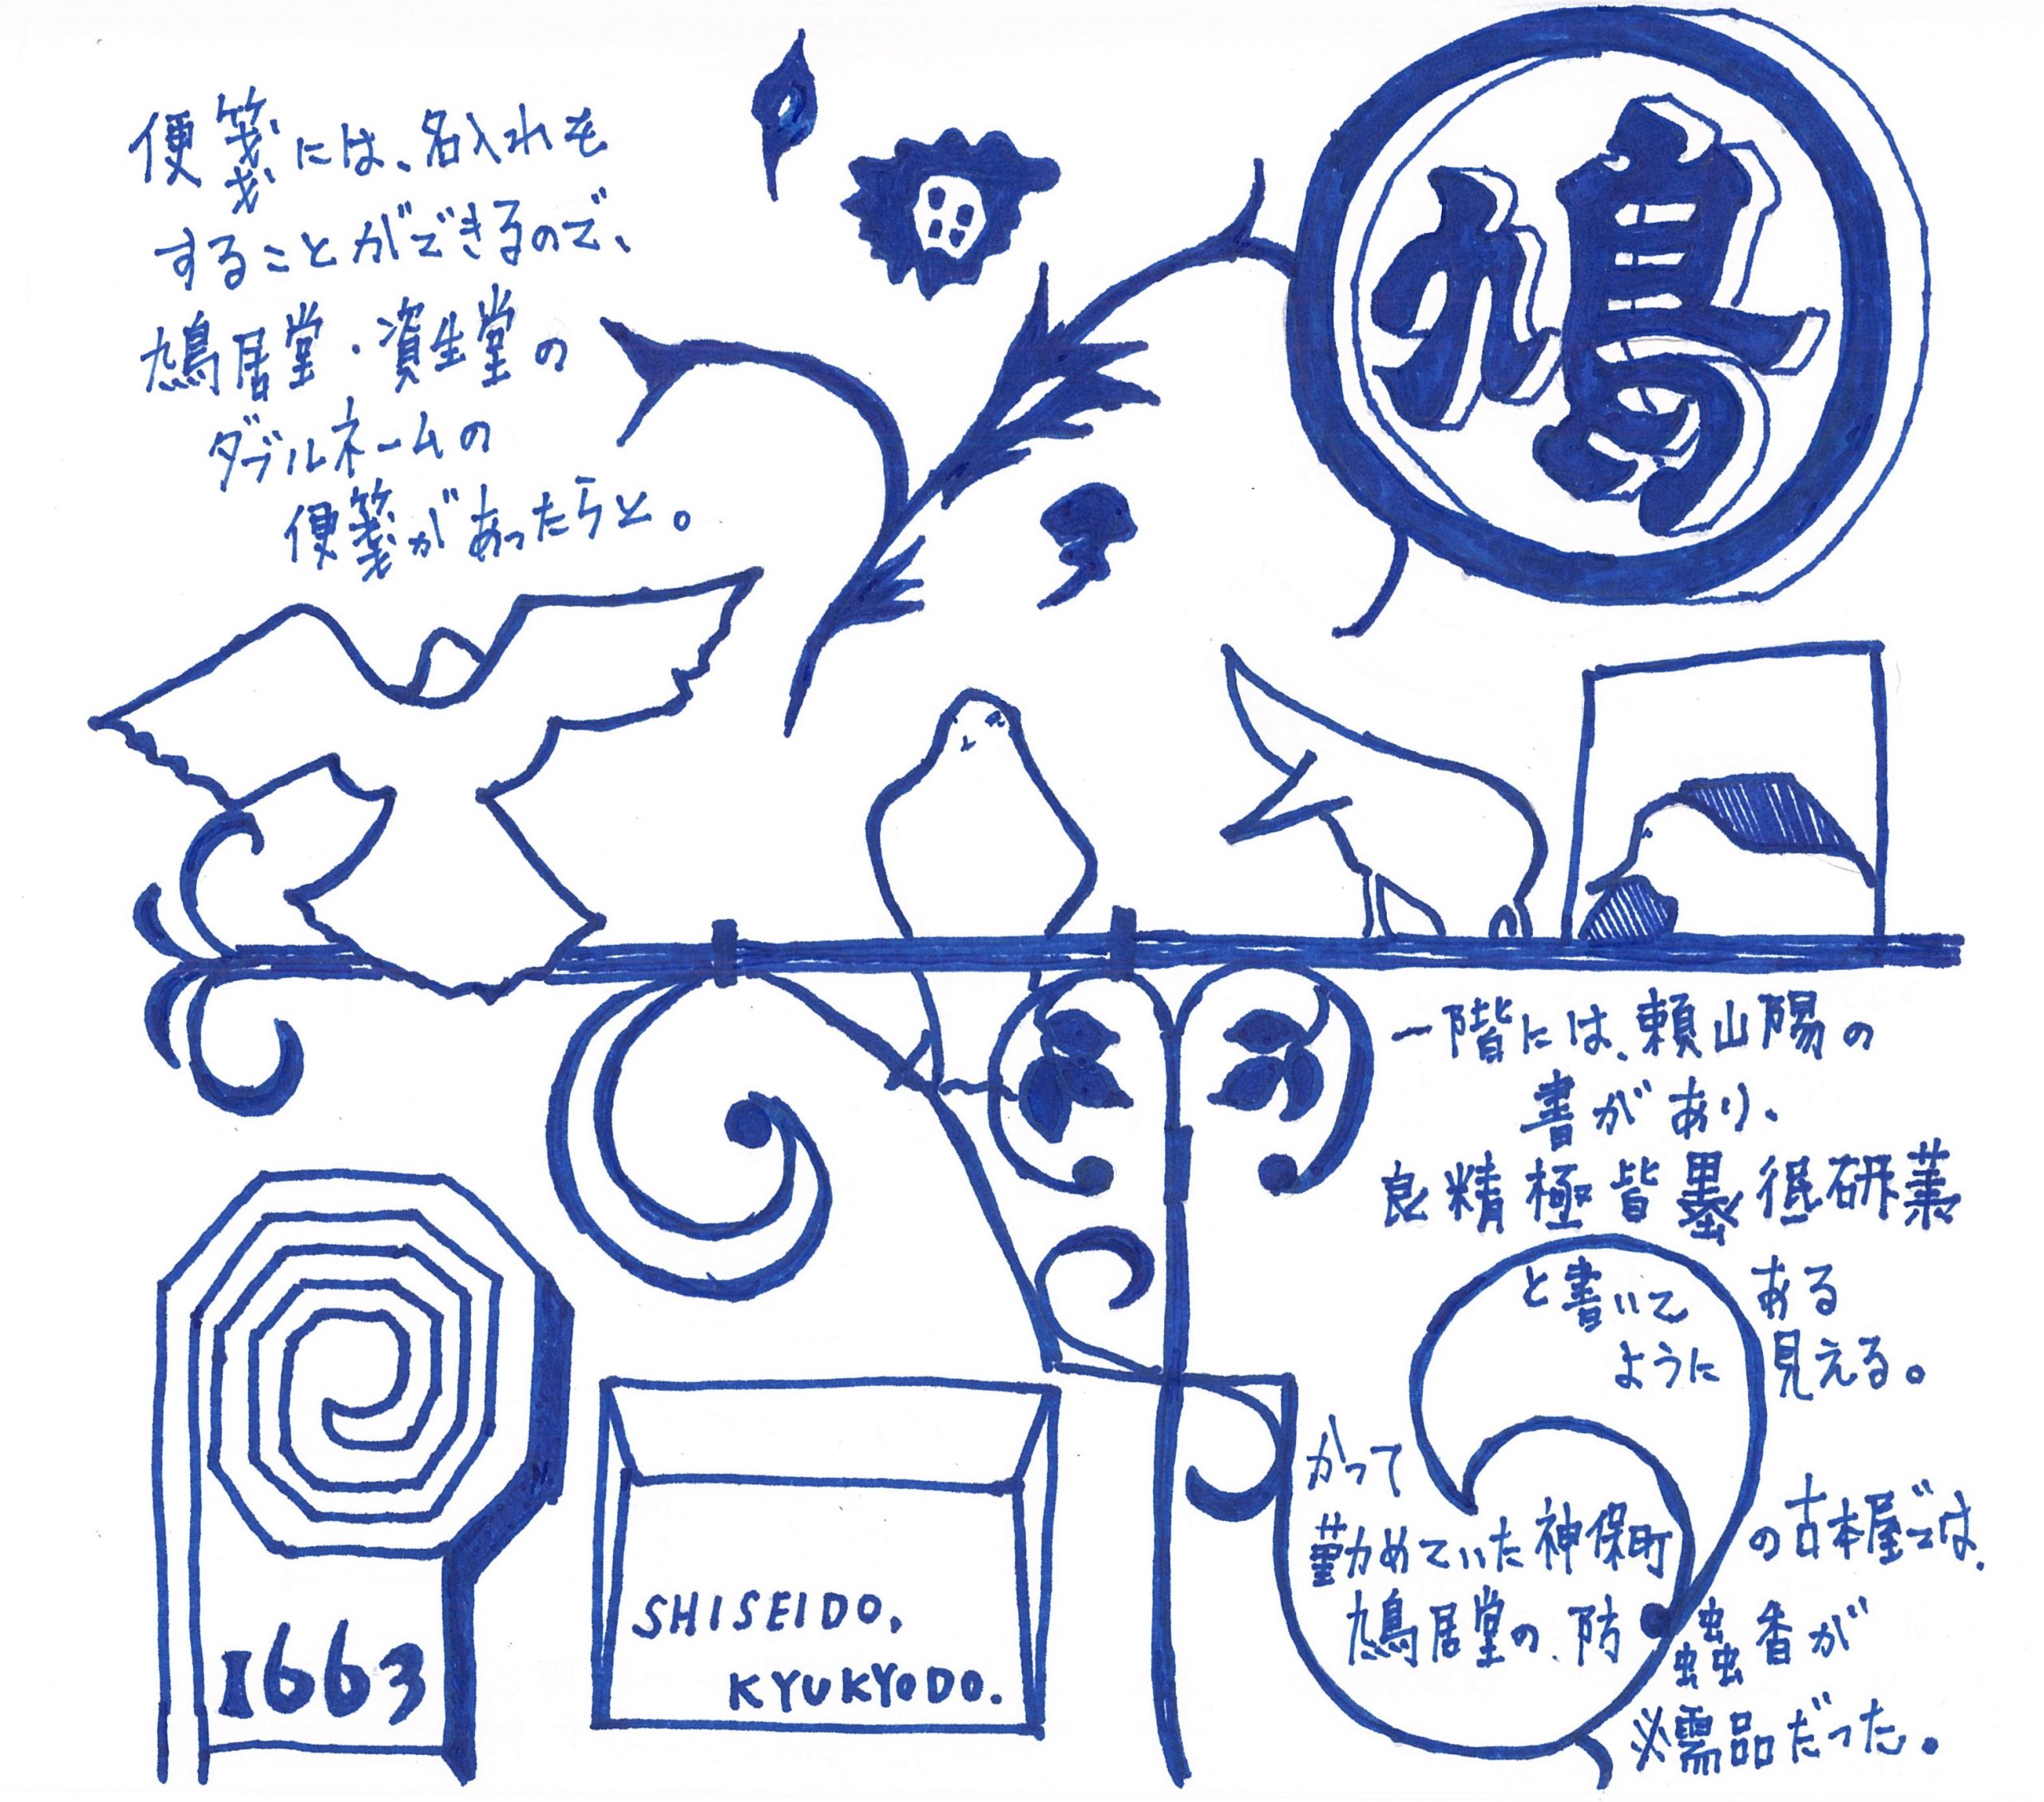 便箋には、名入れも
することができるので、
鳩居堂・資生堂の
ダブルネームの
便箋があったらと。
鳩
一階には、頼山陽の
書があり、
良精極皆墨
研
と書いてある
ように見える。
かつて
勤めていた神保町の古本屋では、
鳩居堂の、防蟲香が
必需品だった。
1663
SHISEIDO,
KYUKYODO.